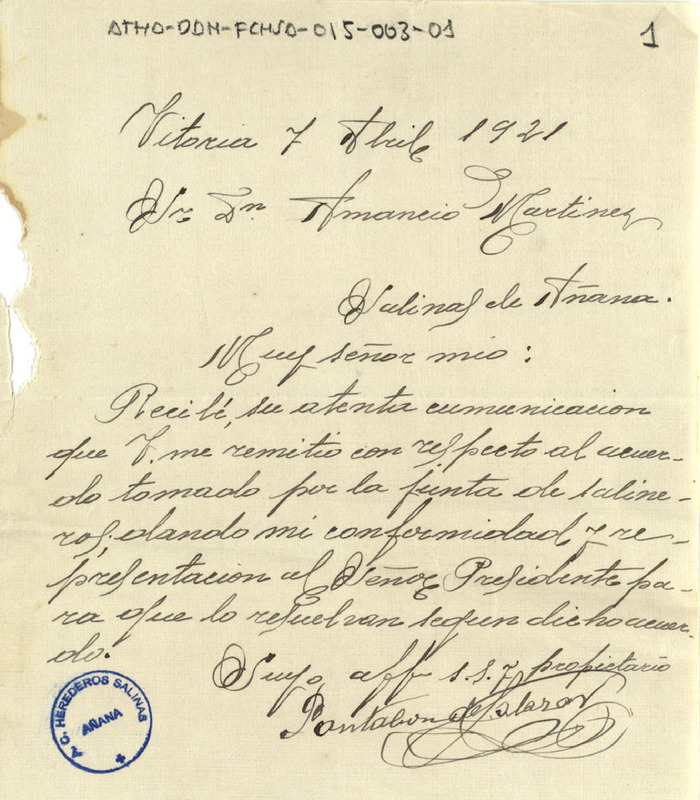 ATHA-DDN-FCHSA-015-003-01
1
Vitoria 7 Abril 1921
Sr Dn Amancio Martinez
Salinas de Añana.
Muy señor mio:
Recibí, su atenta cumunicacion
que V. me remitio con respecto al acuer-
do tomado por la junta de saline-
ros; dando mi conformidad y re-
presentacion al Señor Presidente pa-
ra que lo resuelvan segun dicho acuer-
do.
Suyo aff s.s. y propietario
Pantaleon de Salazar
A. C. HEREDEROS SALINAS
AÑANA